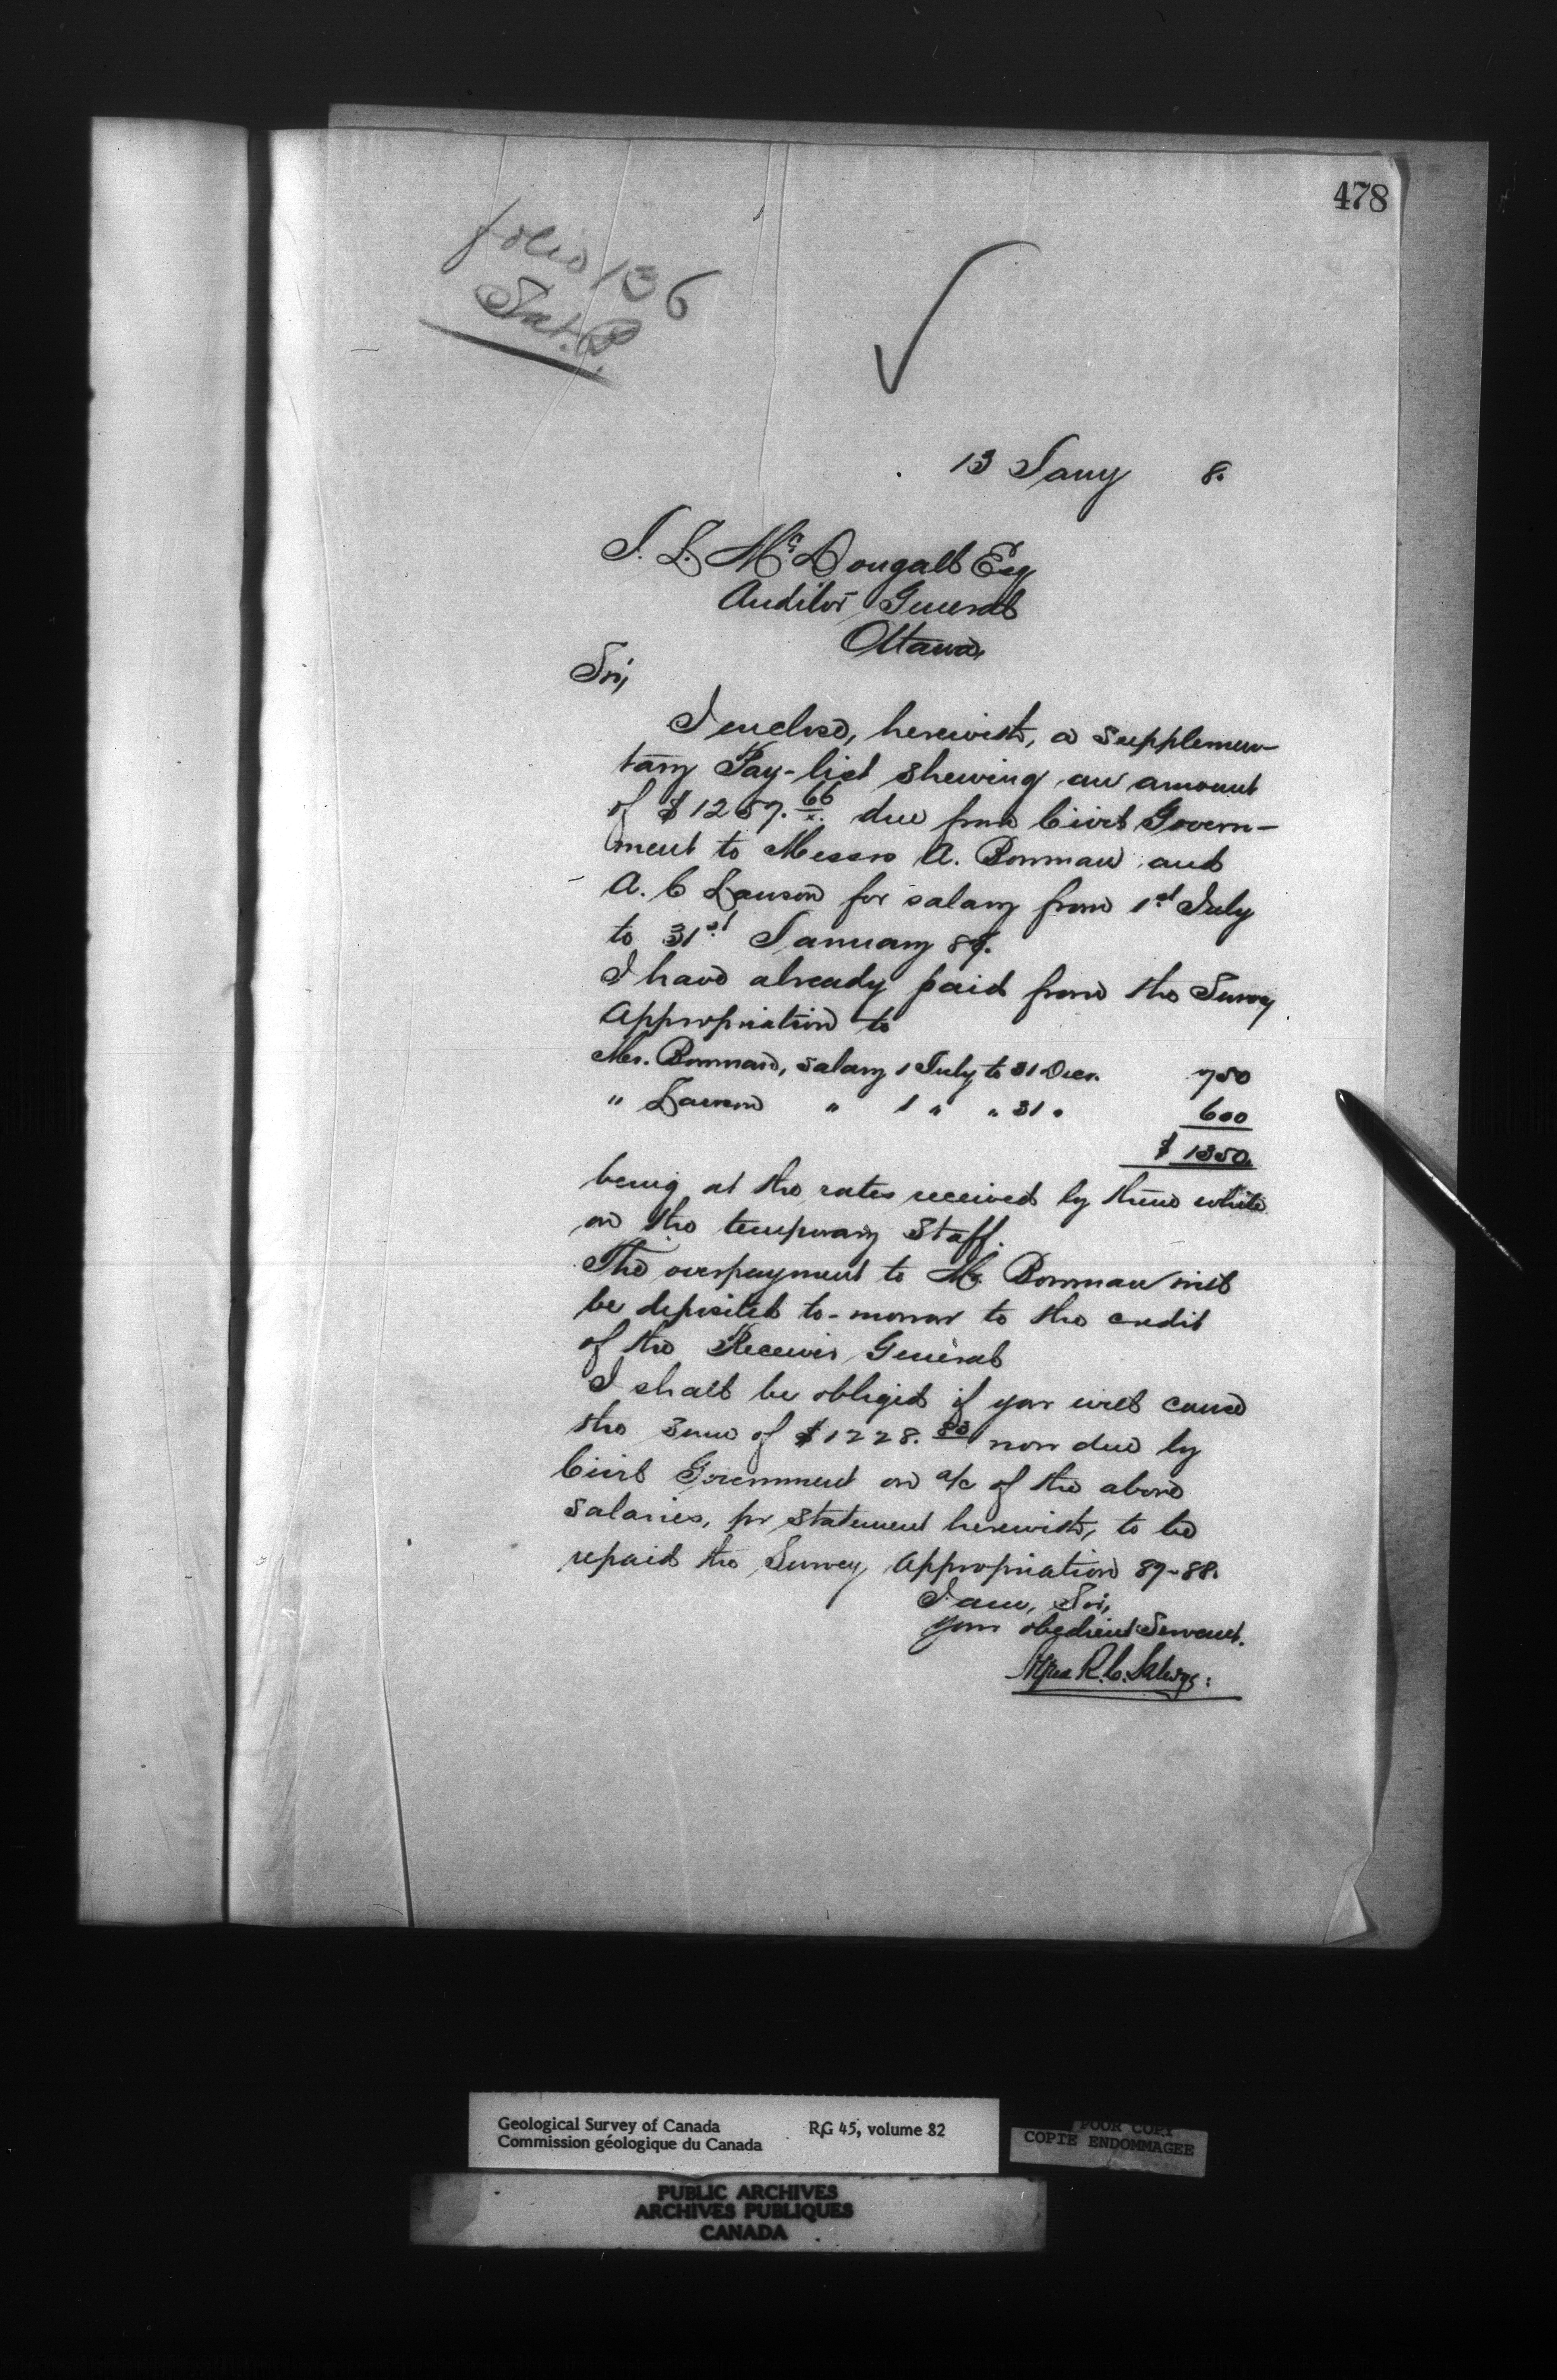 478
folio 136
Sat. B.
13 Jany 8.
J. L. McDougall Esq
Auditor General
Ottawa,
Sir,
I enclose, herewith, a supplemen-
tary Pay-list shewing an amount
of $1257.66 due from Civil Govern-
ment to Messrs A. Bowman and
A. C Lawson for salary from 1st July
to 31st January 88.
I have already paid from the Survey
Appropriation to
Mr. Bowman, Salary 1 July to 31 Decr. 750
" Lawson " 1 " " 31 " 600
$ 1350.
being at the rates received by them while
on the temporary Staff.
The overpayment to Mr. Bowman will
be deposited to-morrow to the credit
of the Receiver General
I shall be obliged if you will cause
the sum of $1228.83 now due by
Civil Government on a/c of the above
salaries, pr statement herewith, to be
repaid the Survey Appropriation 87-88.
I am, Sir,
your obedient Servant.
R. C. Selwyn
Geological Survey of Canada RG 45, volume 82
Commission géologique du Canada
POOR COPY
COPIE ENDOMMAGEE
PUBLIC ARCHIVES
ARCHIVES PUBLIQUES
CANADA